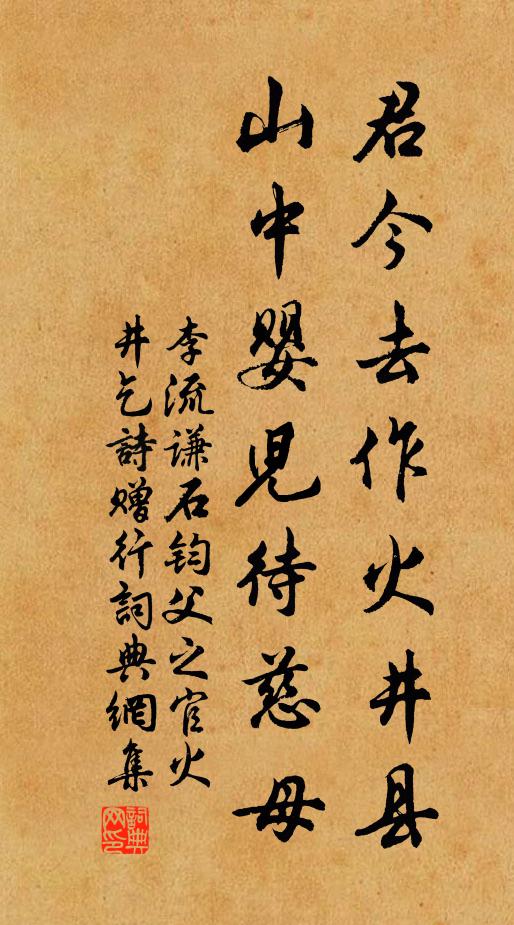 君今去作火井县
山中婴児待慈母
李流谦石钧父之官火
井乞詩赠行詞典網集
詞典网印